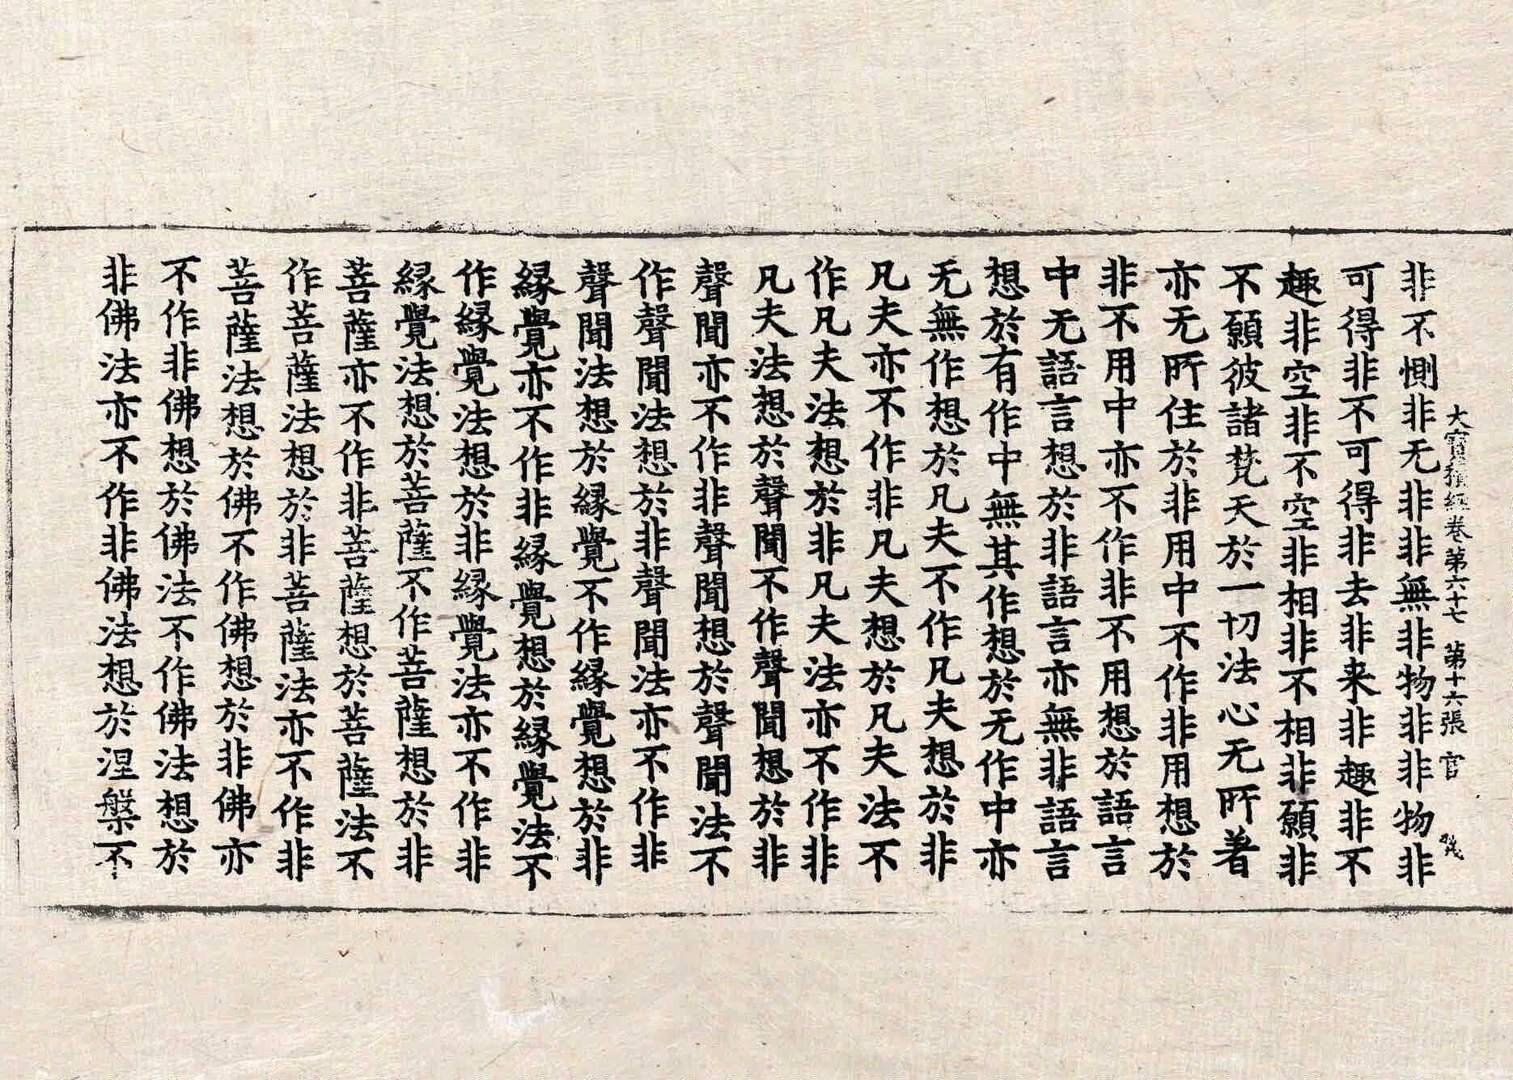 大寶積經卷第六十七 第十六張 官
非不惻非无非非無非物非非物非
可得非不可得非去非来非趣非不
趣非空非不空非相非不相非願非
不願彼諸梵天於一切法心无所著
亦无所住於非用中不作非用想於
非不用中亦不作非不用想於語言
中无語言想於非語言亦無非語言
想於有作中無其作想於无作中亦
无無作想於凡夫不作凡夫想於非
凡夫亦不作非凡夫想於凡夫法不
作凡夫法想於非凡夫法亦不作非
凡夫法想於聲聞不作聲聞想於非
聲聞亦不作非聲聞想於聲聞法不
作聲聞法想於非聲聞法亦不作非
聲聞法想於縁覺不作縁覺想於非
縁覺亦不作非縁覺想於縁覺法不
作縁覺法想於非縁覺法亦不作非
縁覺法想於菩薩不作菩薩想於非
菩薩亦不作非菩薩想於菩薩法不
作菩薩法想於非菩薩法亦不作非
菩薩法想於佛不作佛想於非佛亦
不作非佛想於佛法不作佛法想於
非佛法亦不作非佛法想於涅槃不